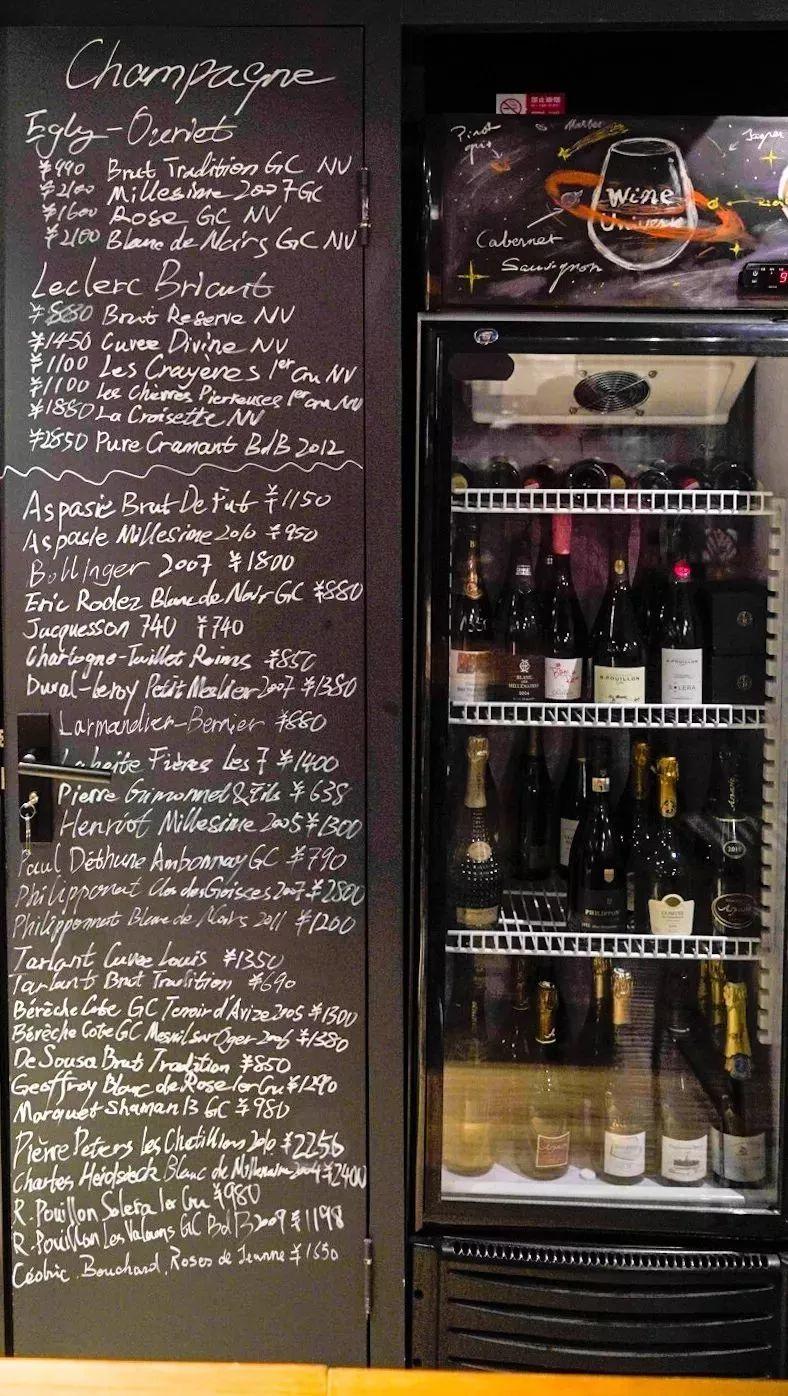 Champagne
Egly-Ouriet
¥990 Brut Tradition GC NV
¥2100 Millesime 2007 GC
¥1600 Rose GC NV
¥2100 Blanc de Noirs GC NV
Leclerc Briant
Brut Reserve NV
¥1450 Cuvee Divine NV
¥1100 Les Crayères 1er Cru NV
¥1100 Les Chèvres Pierreuses 1er cru NV
¥1880 La Croisette NV
¥2850 Pure Cramant BdB 2012
Aspasie Brut De Fut ¥1150
Aspasie Millesime 2010 ¥950
Bollinger 2007 ¥1800
Eric Rodez Blanc de Noir GC ¥880
Jacquesson 740 ¥740
Chartogne-Taillet Reims ¥850
Duval-Leroy Petit Meslier 2007 ¥1380
Larmandier-Bernier ¥880
Laherte Frères Les 7 ¥1400
Pierre Gimonnet & Fils ¥638
Henriot Millesime 2005 ¥1300
Paul Déthune Ambonnay GC ¥790
Philipponnat Clos des Goisses 2007 ¥2800
Philipponnat Blanc de Noirs 2011 ¥1200
Tarlant Cuvee Louis ¥1350
Tarlant Brut Tradition ¥690
Bérêche Cote GC Terroir d'Avize 2005 ¥1300
Bérêche Cote GC Mesnil sur Oger 2006 ¥1380
De Sousa Brut Tradition ¥850
Geoffroy Blanc de Rose 1er Cru ¥1290
Marguet Shaman 13 GC ¥980
Pièrre Peters les Chetillons 2010 ¥2256
Charles Heidsieck Blanc de Millenaire 2004 ¥2400
R. Pouillon Solera 1er Cru ¥980
R. Pouillon Les Valnons GC BdB 2009 ¥1198
Cédric Bouchard Roses de Jeanne ¥1650
Pinot
gris
Wine
Universe
Cabernet
Sauvignon
BLANC
MILLENAIRES
2004
R.POUILLON
R.POUILLON
SOLERA
PHILIPPON